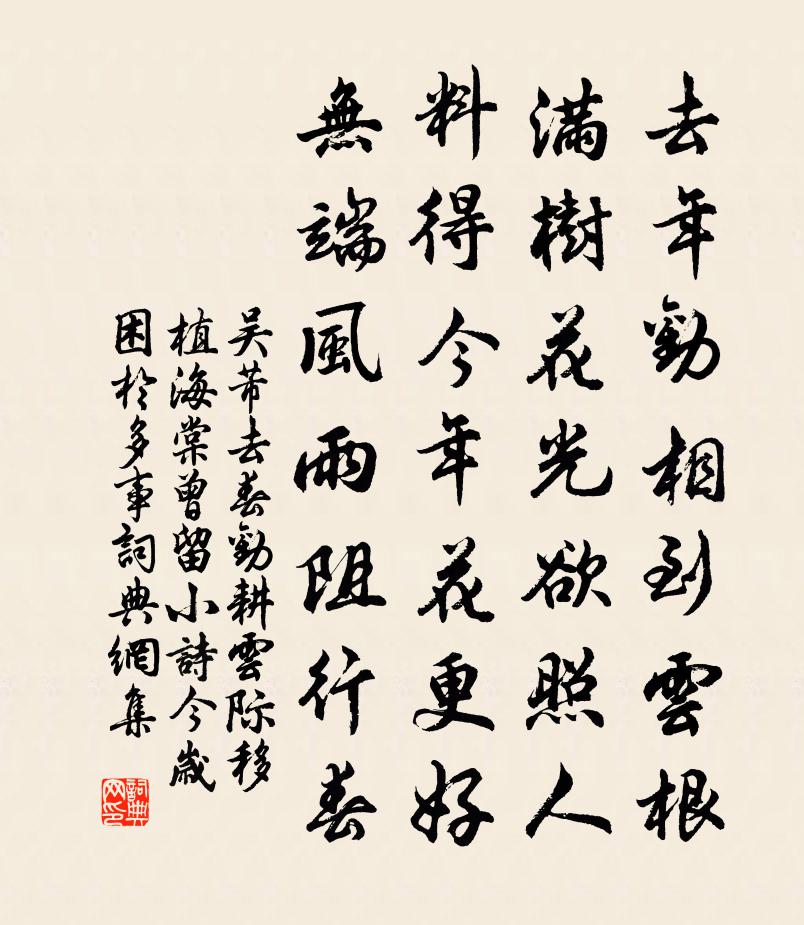 去年勸相到雲根
滿樹花光欲照人
料得今年花更好
無端風雨阻行春
吳芾去春勸耕雲際移
植海棠曾留小詩今歲
困於多事詞典網集
詞典网印